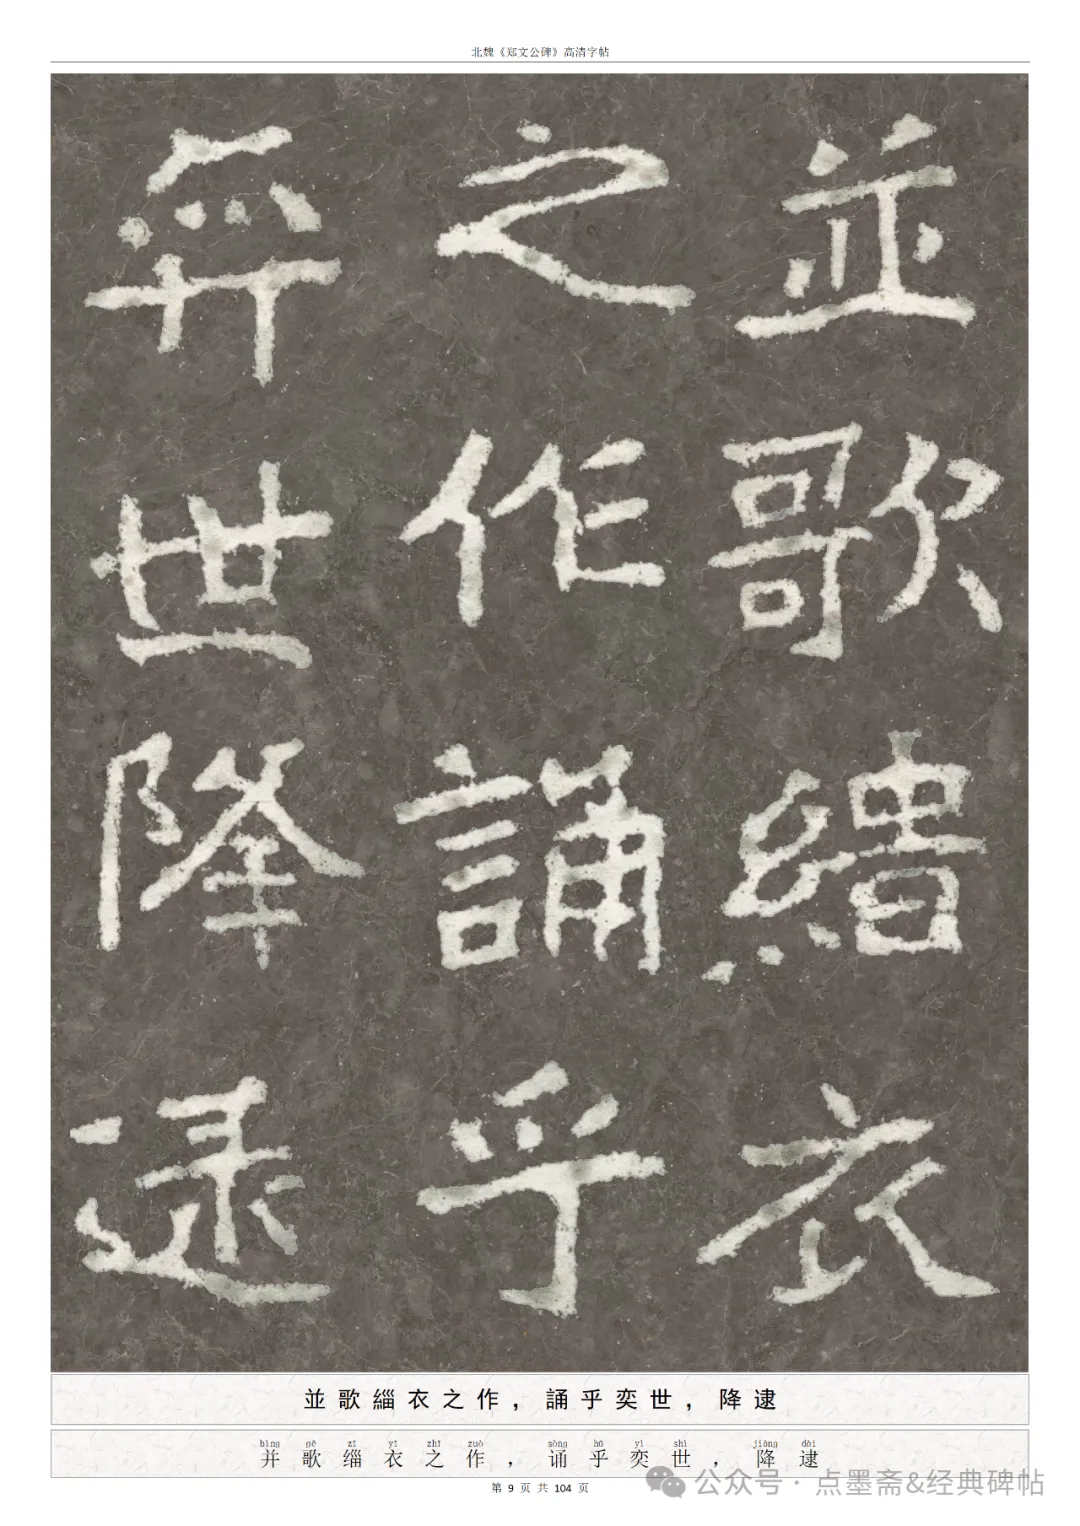 北魏《郑文公碑》高清字帖
並歌緇衣
之作誦乎
弈世降逮
並歌緇衣之作，誦乎奕世，降逮
bìng gē zī yī zhī zuò sòng hū yì shì jiàng dài
并歌缁衣之作，诵乎奕世，降逮
第 9 页 共 104 页
公众号 · 点墨斋&经典碑帖